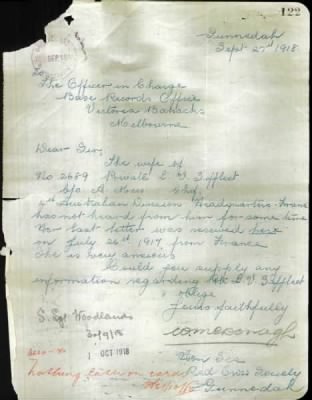 122
Gunnedah
Sept 27th 1918
To
The Officer in Charge
Base Records Office
Victoria Barracks
Melbourne
Dear Sir,
The wife of
No 2689 Private E. V. Siffleet
4th Australian Division Headquarters France
has not heard from him for some time
Her last letter was received here
on July 26th 1917 from France
She is very anxious
Could you supply any
information regarding Pte E. V. Siffleet
& oblige
Yours faithfully
Hon Sec
Red Cross Society
Gunnedah
S. Sgt Woodlands
30/9/18
1 OCT 1918
Nothing late on card